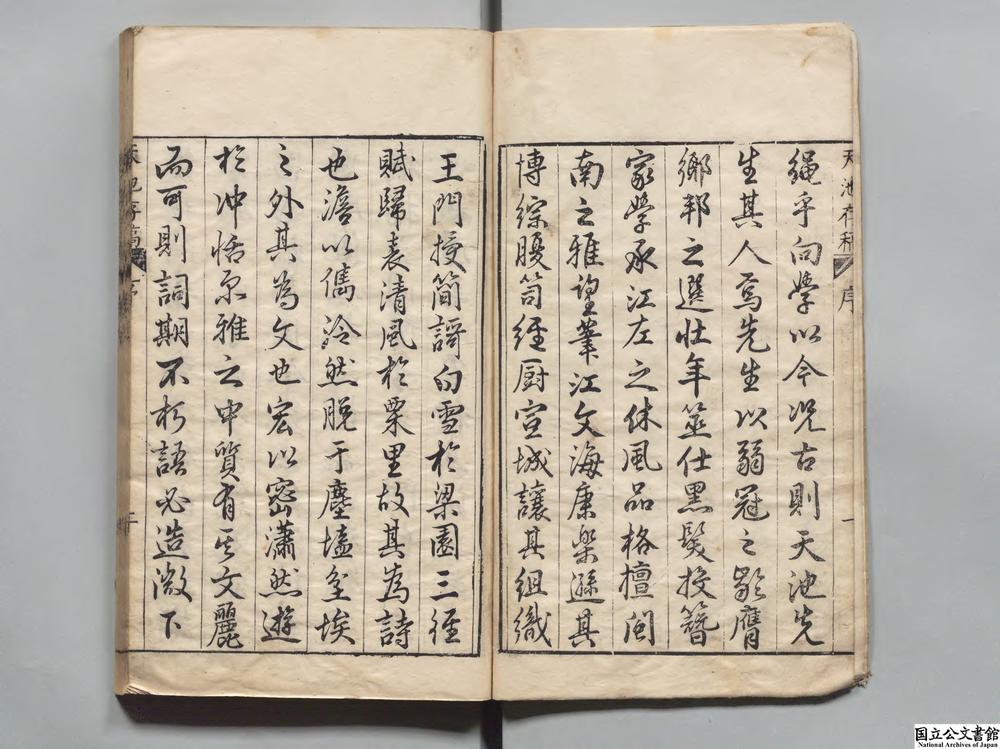 天池存稿 序 一
繩乎向學以今况古則天池先
生其人焉先生以弱冠之齡膺
鄉邦之選壯年筮仕黑髮投簪
家學承江左之休風品格擅閩
南之雅望筆江文海康樂遜其
博綜腹笥經厨宣城讓其組織
王門授簡謌白雪於梁園三徑
賦歸表清風於栗里故其為詩
也澹以儁泠然脫于塵壒坌埃
之外其為文也宏以密瀟然遊
於冲恬原雅之中質有其文麗
而可則詞期不朽語必造微下
天池存稿 序
国立公文書館
National Archives of Japan